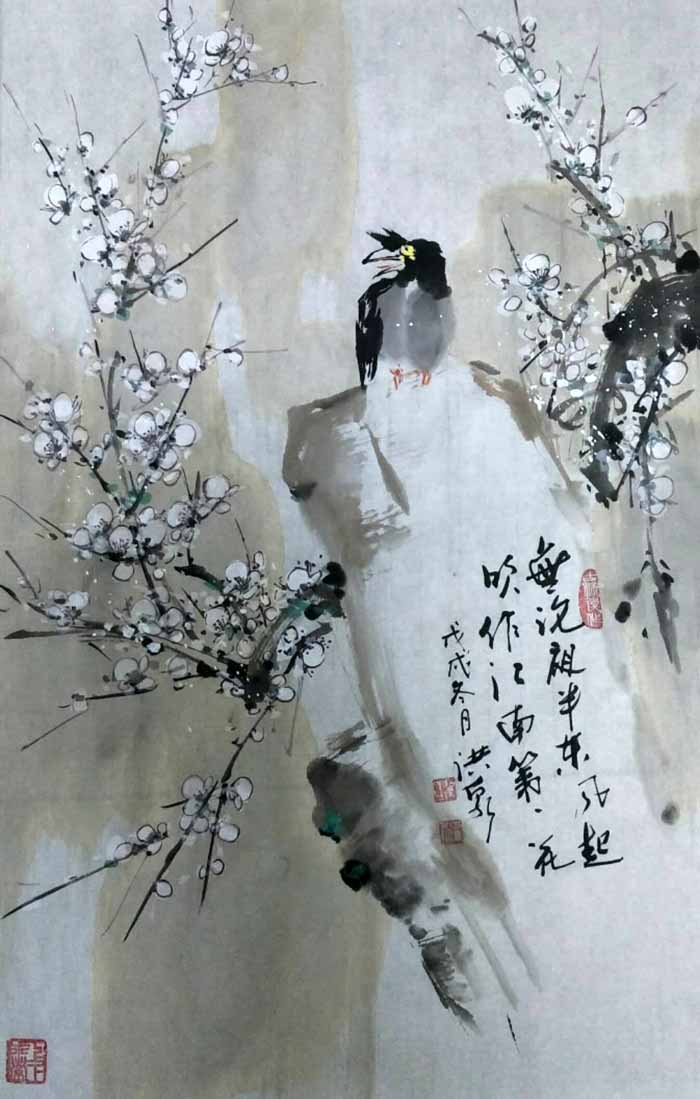 無端夜半東风起
吹作江南第一花
戊戌冬月 洪泉